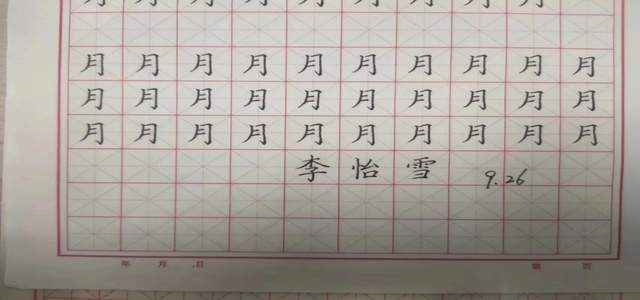 月月月月月月月月月月
月月月月月月月月月月
月月月月月月月月月月
李怡雪 9.26
年 月 日 第 页